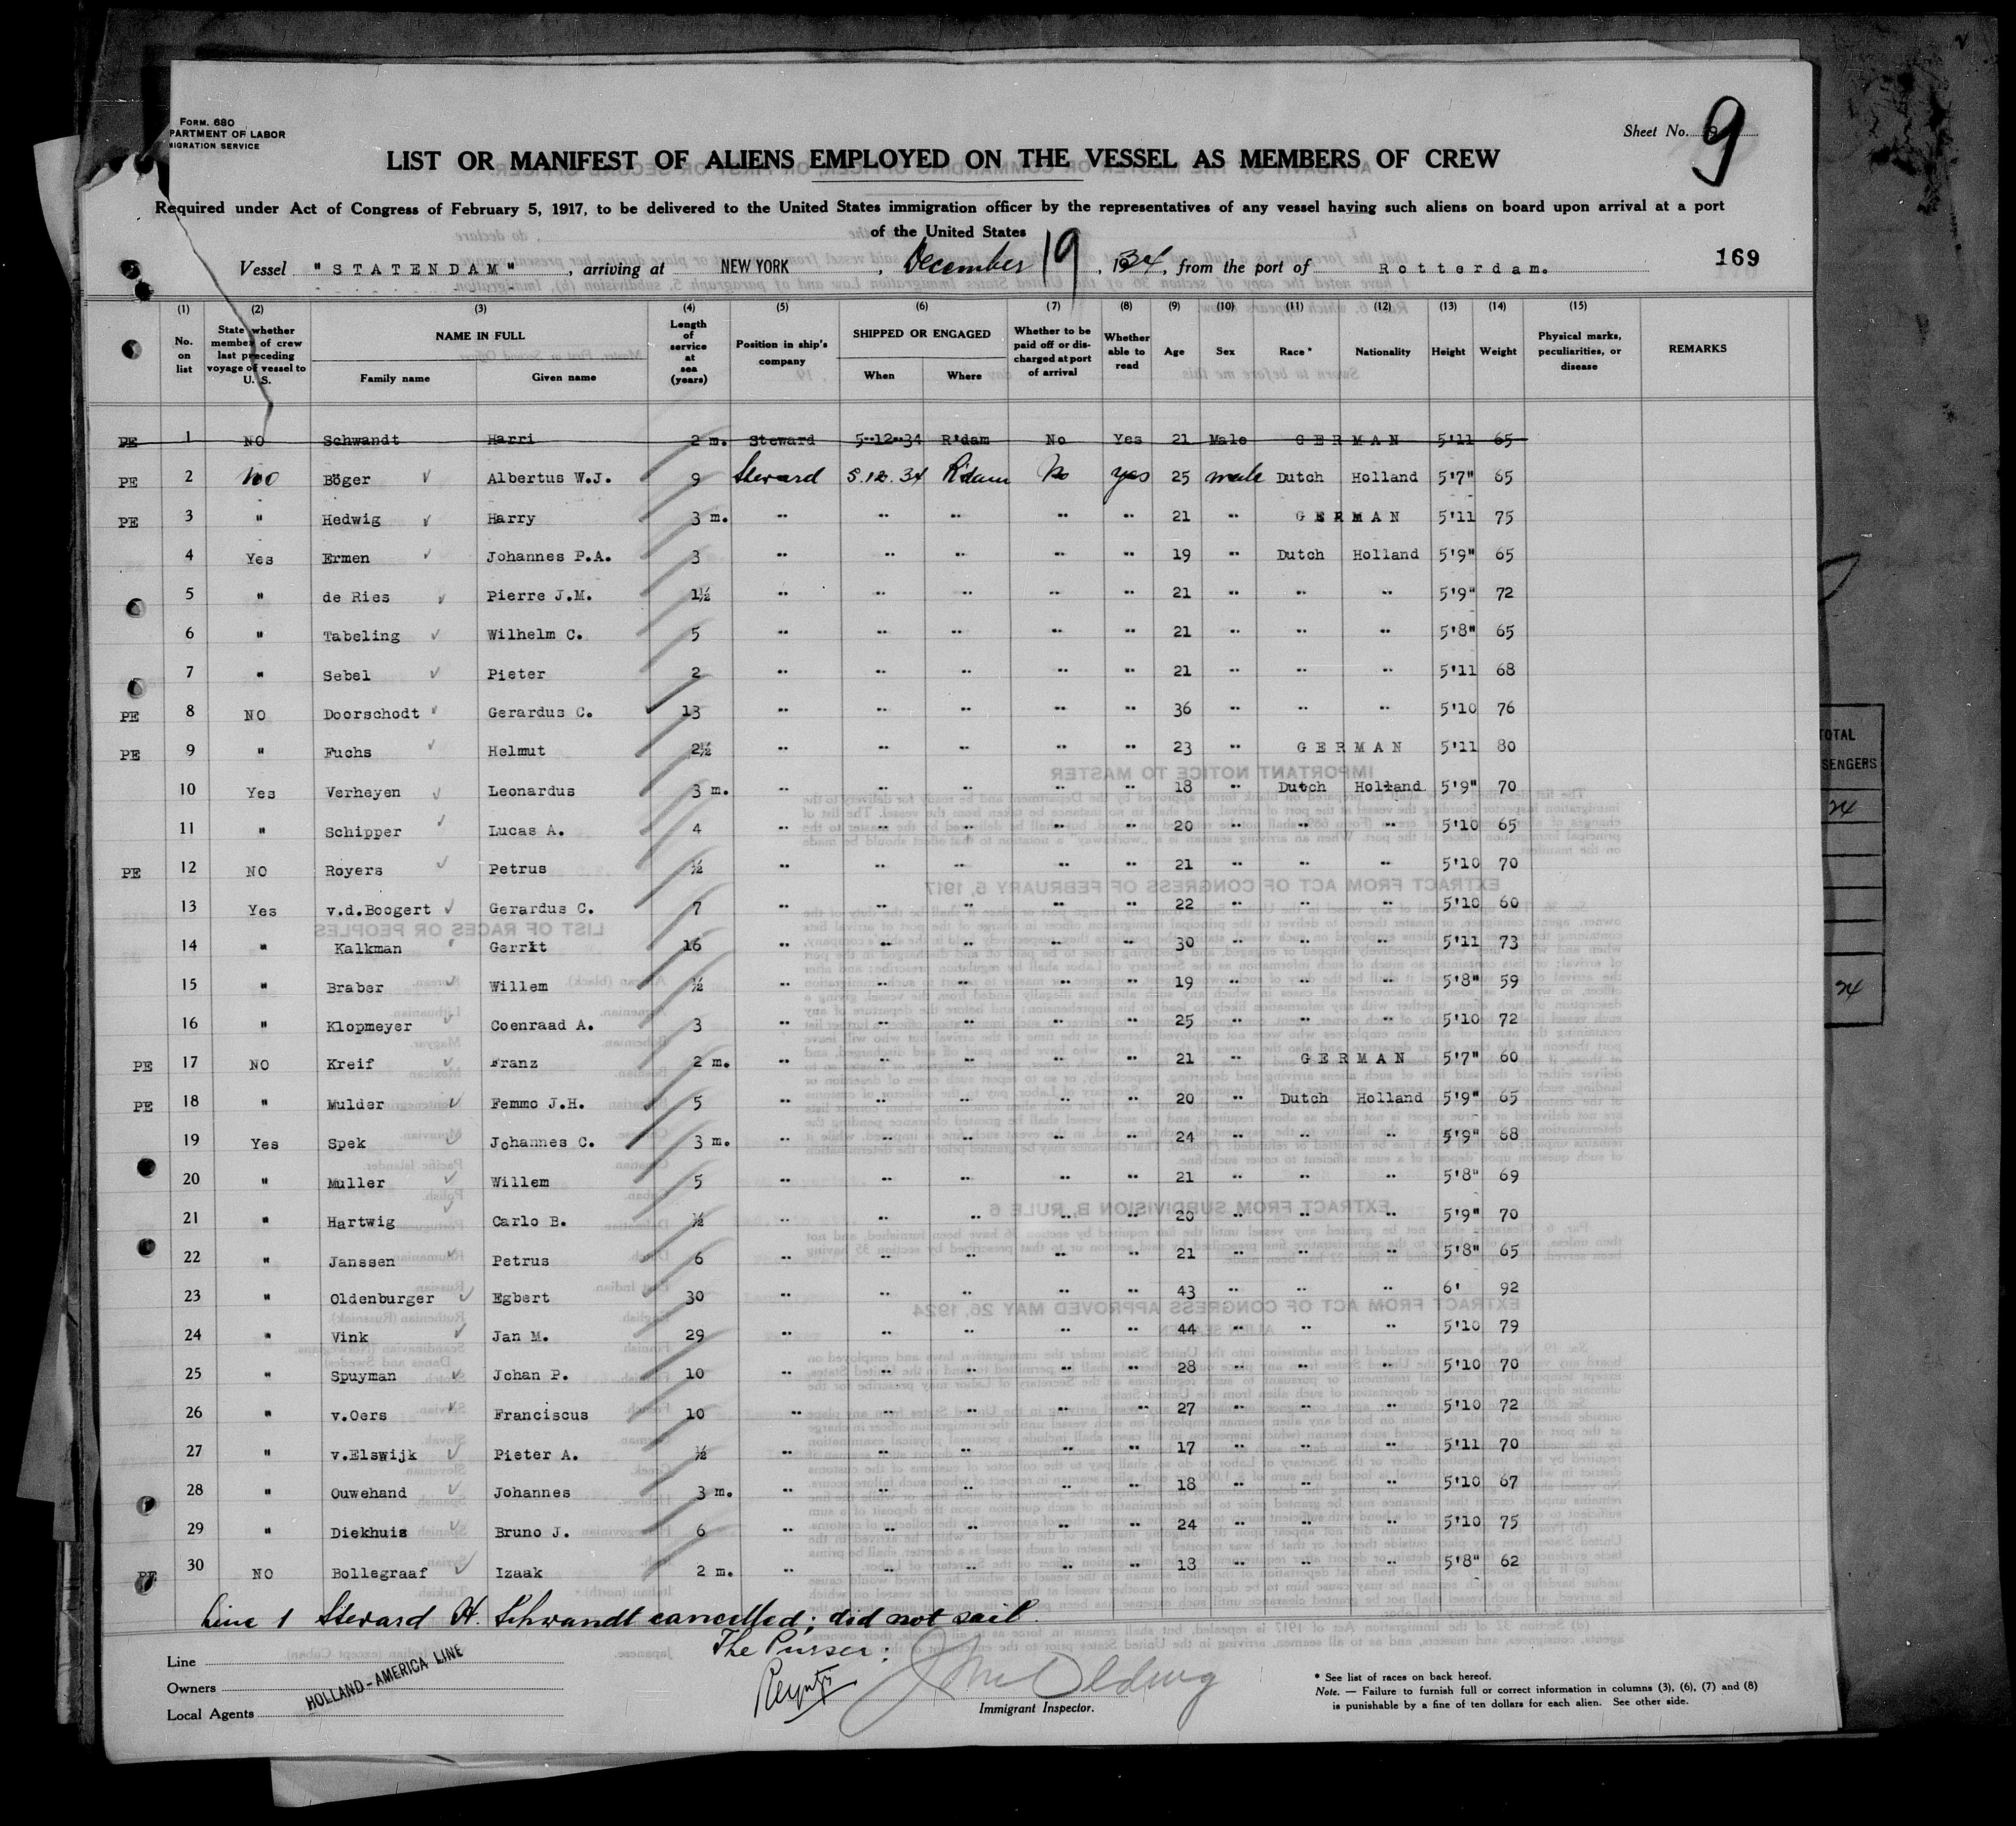 FORM. 680
PARTMENT OF LABOR
MIGRATION SERVICE
Sheet No. 9
9
LIST OR MANIFEST OF ALIENS EMPLOYED ON THE VESSEL AS MEMBERS OF CREW
Required under Act of Congress of February 5, 1917, to be delivered to the United States immigration officer by the representatives of any vessel having such aliens on board upon arrival at a port
of the United States
Vessel "STATENDAM", arriving at NEW YORK, December 19, 1934, from the port of Rotterdam.
169
(1) (2) (3) (4) (5) (6) (7) (8) (9) (10) (11) (12) (13) (14) (15)
No. on list State whether member of crew last preceding voyage of vessel to U. S. NAME IN FULL Family name Given name Length of service at sea (years) Position in ship's company SHIPPED OR ENGAGED When Where Whether to be paid off or discharged at port of arrival Whether able to read Age Sex Race * Nationality Height Weight Physical marks, peculiarities, or disease REMARKS
PE 1 NO Schwandt Harri 2 m. Steward 5-12-34 R'dam No Yes 21 Male GERMAN 5'11 65
PE 2 NO Böger Albertus W.J. 9 Steward 5.12.34 R'dam No yes 25 male Dutch Holland 5'7" 65
PE 3 " Hedwig Harry 3 m. " " " " " 21 " GERMAN 5'11 75
4 Yes Ermen Johannes P.A. 3 " " " " " 19 " Dutch Holland 5'9" 65
5 " de Ries Pierre J.M. 1½ " " " " " 21 " " " 5'9" 72
6 " Tabeling Wilhelm C. 5 " " " " " 21 " " " 5'8" 65
7 " Sebel Pieter 2 " " " " " 21 " " " 5'11 68
PE 8 NO Doorschodt Gerardus C. 13 " " " " " 36 " " " 5'10 76
PE 9 " Fuchs Helmut 2½ " " " " " 23 " GERMAN 5'11 80
10 Yes Verheyen Leonardus 3 m. " " " " " 18 " Dutch Holland 5'9" 70
11 " Schipper Lucas A. 4 " " " " " 20 " " " 5'10 65
PE 12 NO Royers Petrus ½ " " " " " 21 " " " 5'10 70
13 Yes v.d.Boogert Gerardus C. 7 " " " " " 22 " " " 5'10 60
14 " Kalkman Gerrit 16 " " " " " 30 " " " 5'11 73
15 " Braber Willem ½ " " " " " 19 " " " 5'8" 59
16 " Klopmeyer Coenraad A. 3 " " " " " 25 " " " 5'10 72
PE 17 NO Kreif Franz 2 m. " " " " " 21 " GERMAN 5'7" 60
PE 18 " Mulder Femmo J.H. 5 " " " " " 20 " Dutch Holland 5'9" 65
19 Yes Spek Johannes C. 3 m. " " " " " 24 " " " 5'9" 68
20 " Muller Willem 5 " " " " " 21 " " " 5'8" 69
21 " Hartwig Carlo B. ½ " " " " " 20 " " " 5'9" 70
22 " Janssen Petrus 6 " " " " " 21 " " " 5'8" 65
23 " Oldenburger Egbert 30 " " " " " 43 " " " 6' 92
24 " Vink Jan M. 29 " " " " " 44 " " " 5'10 79
25 " Spuyman Johan P. 10 " " " " " 28 " " " 5'10 70
26 " v.Oers Franciscus 10 " " " " " 27 " " " 5'10 72
27 " v.Elswijk Pieter A. ½ " " " " " 17 " " " 5'11 70
28 " Ouwehand Johannes 3 m. " " " " " 18 " " " 5'10 67
29 " Diekhuis Bruno J. 6 " " " " " 24 " " " 5'10 75
PE 30 NO Bollegraaf Izaak 2 m. " " " " " 18 " " " 5'8" 62
Line 1 Steward H. Schwandt cancelled; did not sail.
The Purser:
Line
Owners
Local Agents
HOLLAND-AMERICA LINE
Immigrant Inspector.
* See list of races on back hereof.
Note. — Failure to furnish full or correct information in columns (3), (6), (7) and (8)
is punishable by a fine of ten dollars for each alien. See other side.
TOTAL
SENGERS
24
24